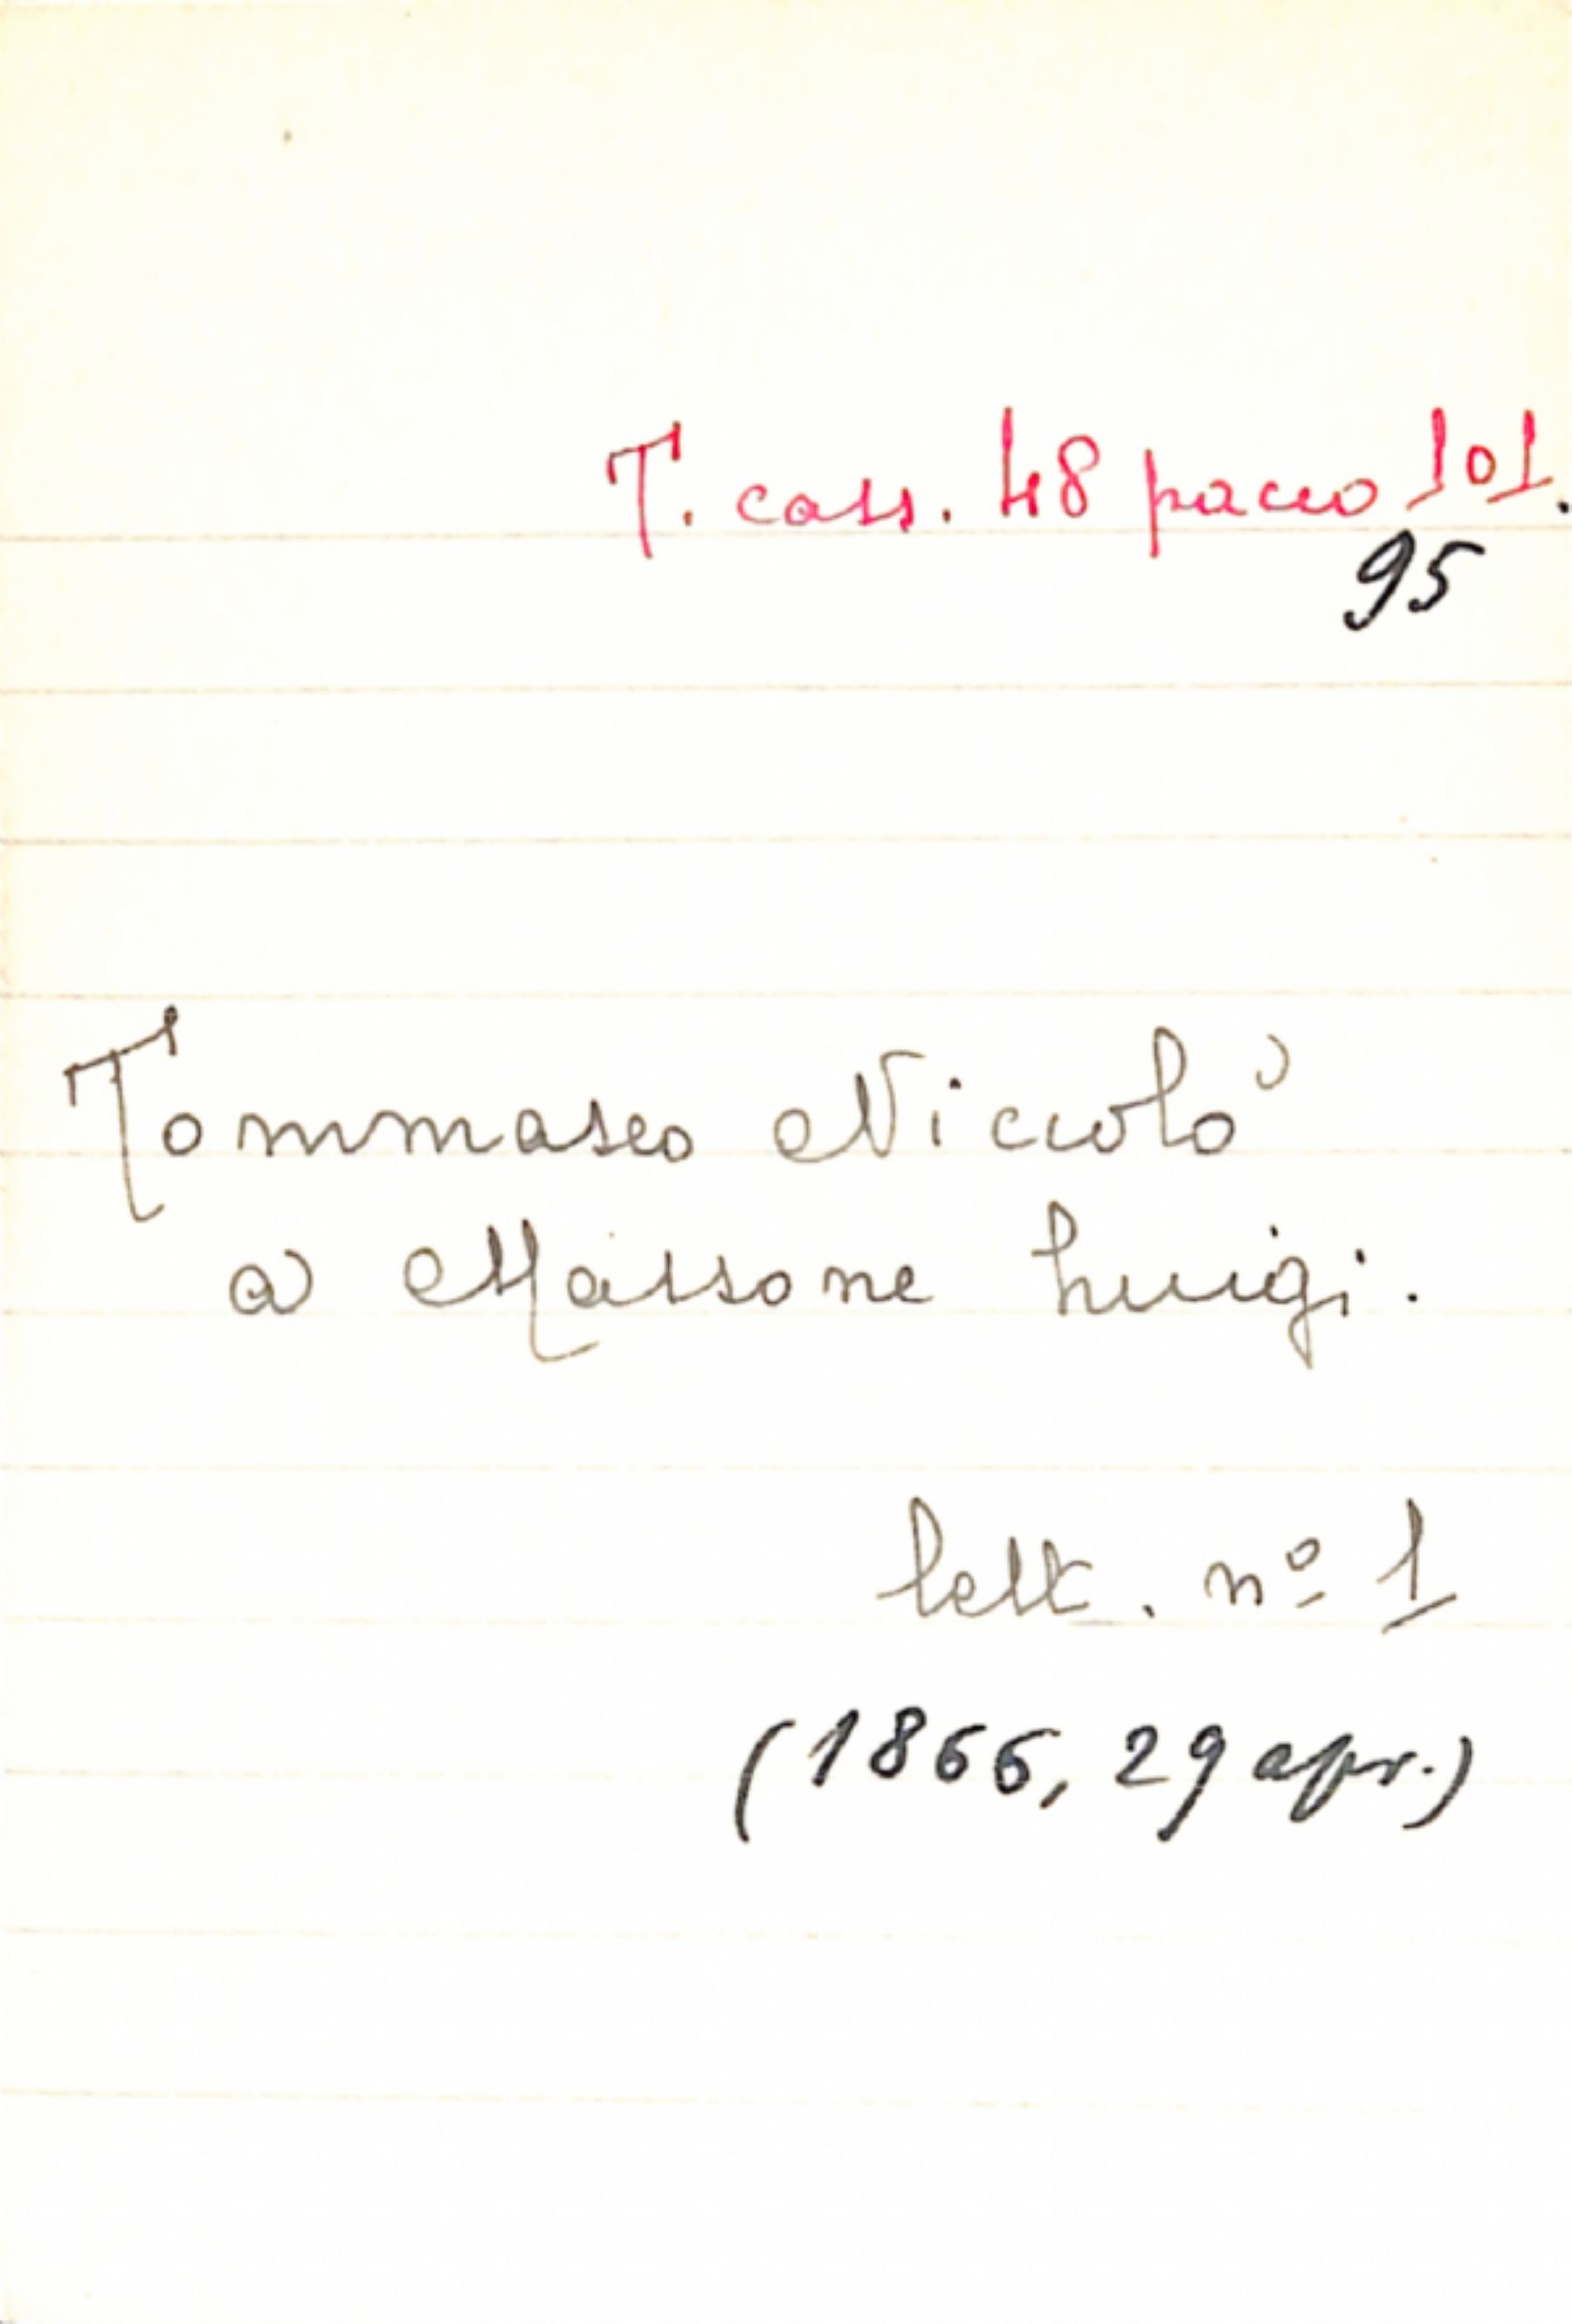 T. cass. 48 pacco 101.
95
Tommaseo Niccolò
a Massone Luigi.
lett. nº 1
(1866, 29 apr.)